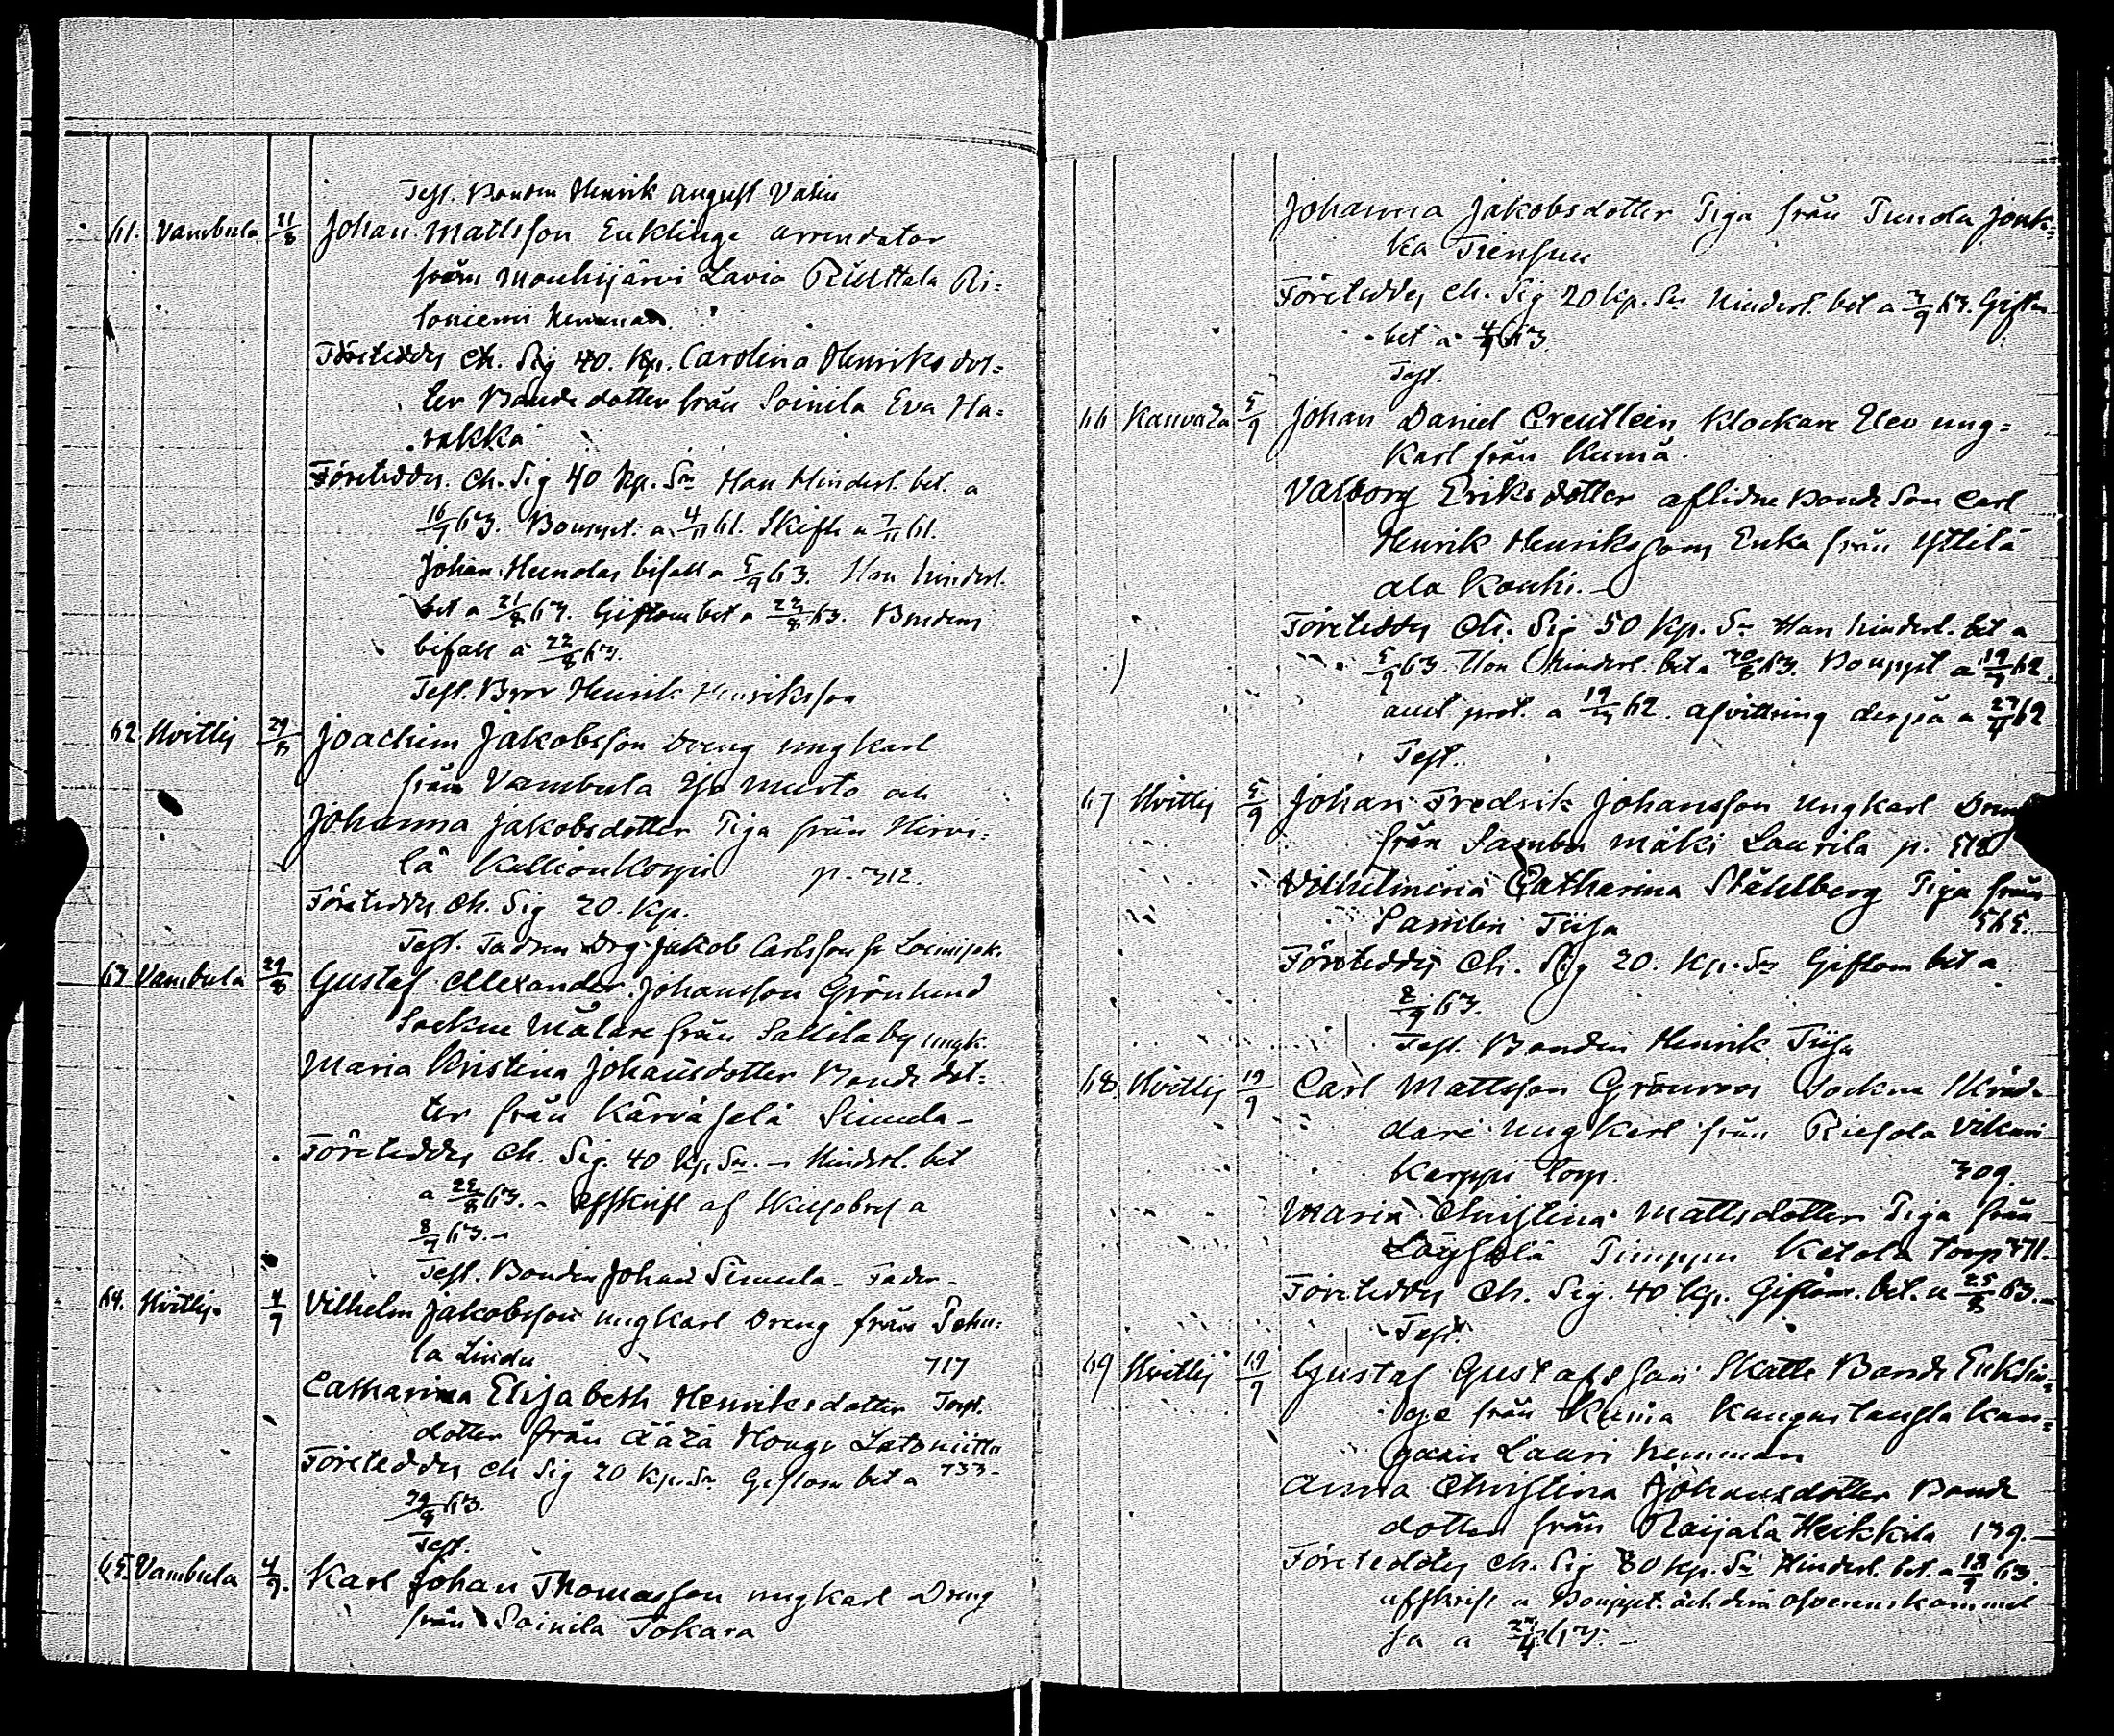 Test. Bonden Henrik August Valin
61. Vambula 21/8 Johan Mattsson Enklinge arrendator
från Mouhijärvi Lavia Riuttala Ri=
toniemi hemman.
Företeddes Ch. Sig 40. Kp. Carolina Henriksdot=
ter Bondedotter från Soinila Eva Ha=
rakka
Företeddes. Ch. Sig 40 Kp. Sr Han Hinderl. bet. a
16/7 63. Bouppt. a 4/11 61. Skifte a 7/11 61.
Johan bifall a 5/9 63. Hon hinderl.
bet a 21/8 63. Giftom bet a 22/8 63.
bifall a 22/8 63.
Test. Bror Henrik Henriksson
62 Hvittis 29/8 Joachim Jakobsson Dreng ungkarl
från Vambula Yjo Murto och
Johanna Jakobsdotter Piga från Hirvi=
lä Kallionkorpi p. 312.
Företeddes Ch. Sig 20. Kp.
Test. Fadren Drg Jakob Carlsson fr Loimijok.
63 Vambula 29/8 Gustaf Alexander Johansson Grönlund
Sockne Målare från Sallila by ungk.
Maria Kristina Johansdotter Bondedot=
ter från Kärväselä Simula -
Företeddes Ch. Sig. 40 Kp. Sr. - Hinderl. bet
a 22/8 63. - afskrift af Skiljobref a
8/7 63. -
Test. Bonden Johan Simula - Fader -
64. Hvittis. 4/9 Vilhelm Jakobsson ungkarl Dreng från Pehu=
la Lindu 717
Catharina Elisabeth Henriksdotter Torp.
dotter från Äärä Hongo Latoniittu
Företeddes Ch Sig 20 Kp. Sr Giftom bet a 733-
29/8 63.
Test.
65. Vambula 4/9. Karl Johan Thomasson ungkarl Dreng
från Soinila Tokara
Johanna Jakobsdotter Piga från Punola Jouk=
ka Trensuu
Företeddes Ch. Sig 20 Kp. Sr Hinderl. bet a 3/9 63. Giftom
bet a 4/9 63
Test.
66 Kauvatsa 5/9 Johan Daniel Creutlein Klockare Elev ung=
karl från Kumå.
Valborg Eriksdotter aflidne Bonde Son Carl
Henrik Henrikssons Enka från Yttilä
ala Kouhi. -
Företeddes Ch. Sig 50 Kp. Sr Han hinderl. bet a
5/9 63. Hon hinderl. bet a 30/8 63. Bouppt a 19/4 62.
aukt prot. a 19/4 62. afvittring derpå a 27/4 62
Test.
67 Hvittis 5/9 Johan Fredrik Johansson ungkarl Dreng
från Sambu mäki Laurila p. 512
Vilhelmina Catharina Ståhlberg Piga från
Sambu Tiisa 565.
Företeddes Ch. Sig 20. Kp. Sr Giftom bet a
2/9 63.
Test. Bonden Henrik Tiisa
68 Hvittis 19/9 Carl Mattsson Grönroos Sockne Skräd=
dare ungkarl från Riesola Vilkari
Karppi torp. 309.
Maria Christina Mattsdotter Piga från
Löysälä Pimppu Ketola torp 771.
Företeddes Ch. Sig. 40 Kp. Giftom. bet. a 25/8 63. -
Test.
69 Hvittis 19/9 Gustaf Gustafsson Skatte Bonde Enklin=
ge från Kumå Kungustausta Kan=
gari Lauri hemman
Anna Christina Johansdotter Bonde
dotter från Raijala Heikkilä 139. -
Företeddes Ch. Sig 80 Kp. Sr Hinderl. bet. a 18/9 63.
afskrift a Bouppt. och deri öfverenskommel
se a